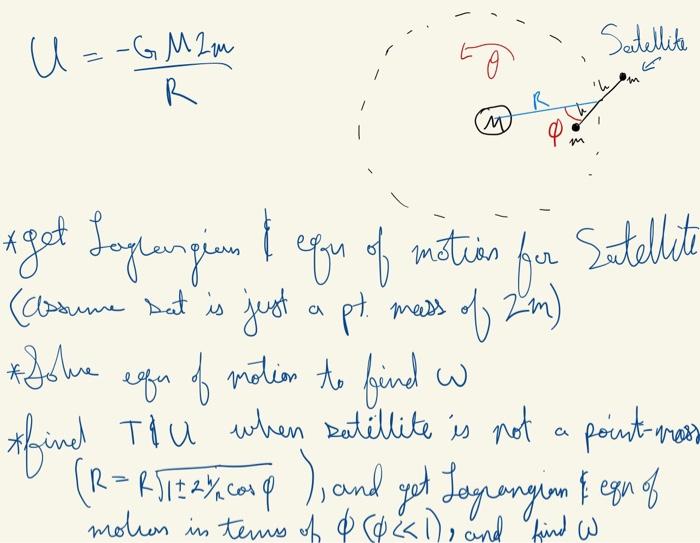 U = -GM2m / R
Satellite
θ
R
h
h
m
M
φ
m
*get Lagrangian & eqn of motion for Satellite
(assume sat is just a pt. mass of 2m)
*Solve eqn of motion to find ω
*find T & U when satellite is not a point-mass
(R = R√1 ± 2h/R cos φ), and get Lagrangian & eqn of
motion in terms of φ (φ<<1), and find ω